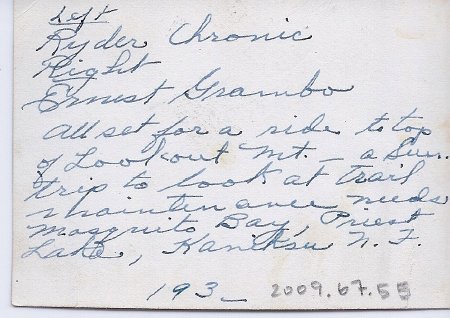 Left
Ryder Chronic
Right
Ernest Grambo
All set for a ride to top
of Lookout Mt. – a Sun.
trip to look at Trail
maintenance needs
Mosquito Bay, Priest
Lake, Kaniksu N. F.
193_ 2009.67.55